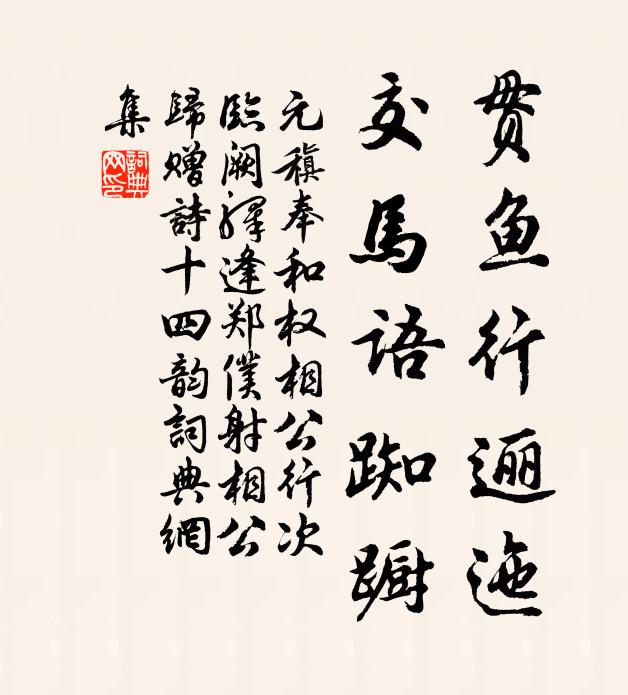 贯鱼行逦迤
交马语踟蹰
元稹奉和权相公行次
临阙驿逢郑仆射相公
歸赠詩十四韵詞典網
集
詞典網印